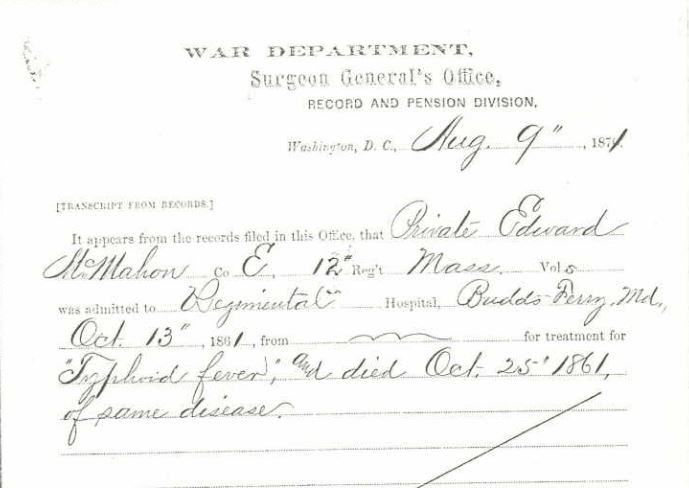 WAR DEPARTMENT,
Surgeon General's Office,
RECORD AND PENSION DIVISION,
Washington, D. C., Aug. 9", 1871.
[TRANSCRIPT FROM RECORDS.]
It appears from the records filed in this Office, that Private Edward
McMahon Co E, 12" Reg't Mass. Vols
was admitted to Regimental Hospital, Budds Ferry, Md.,
Oct. 13", 1861, from for treatment for
"Typhoid fever", and died Oct. 25" 1861,
of same disease.